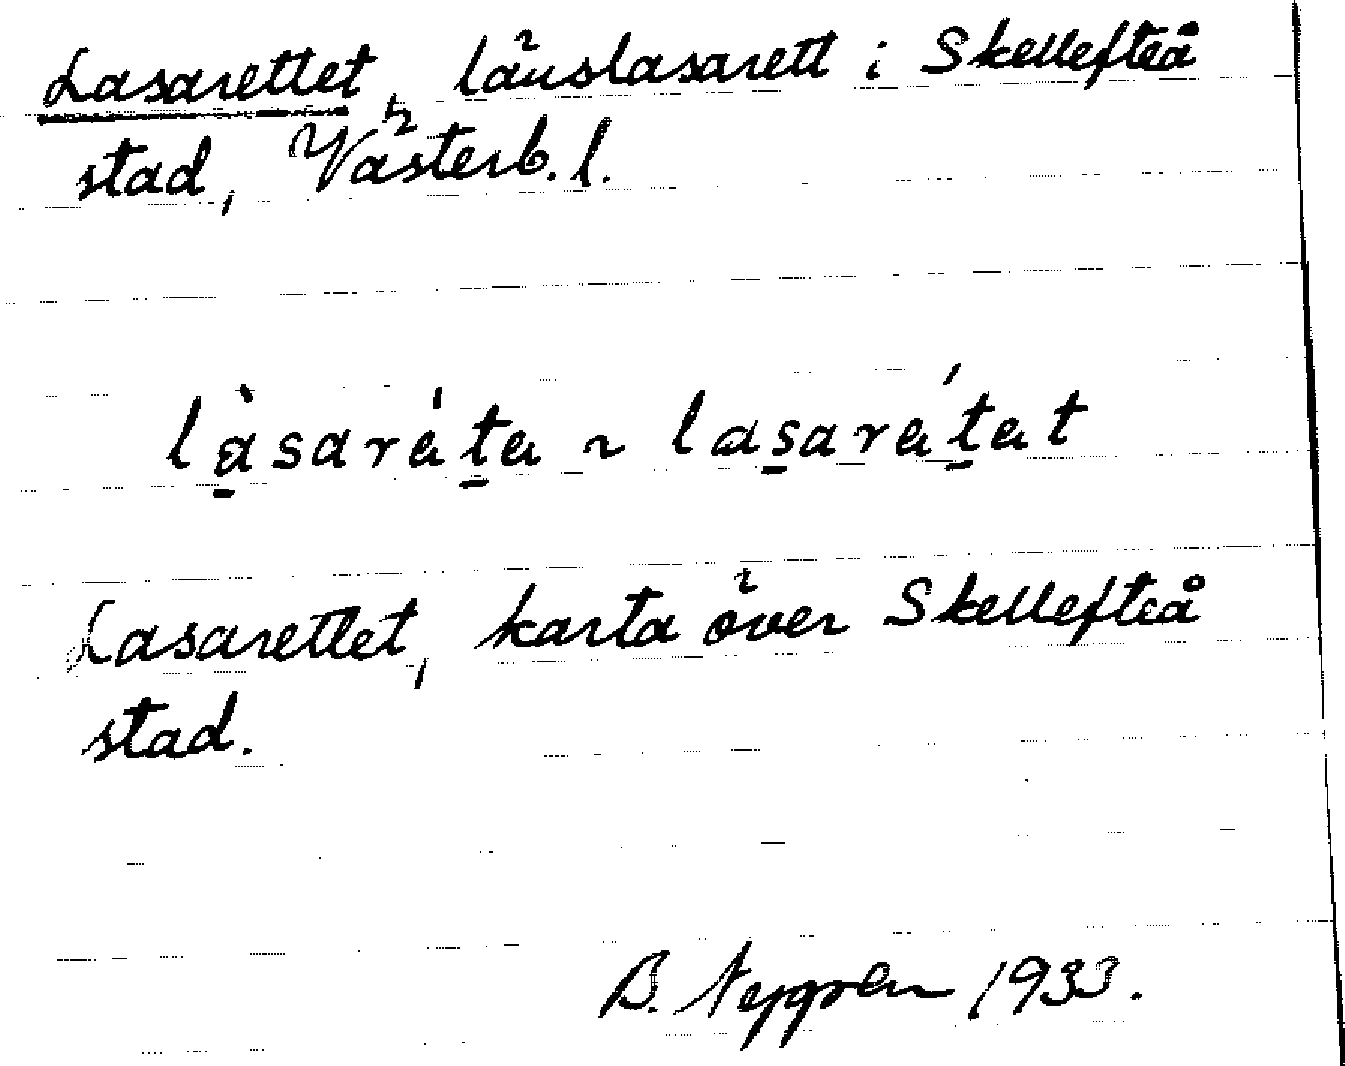 Lasarettet, länslasarett i Skellefteå
stad, Västerb. l.
làsaráta ~ lasarátat
Lasarettet, karta över Skellefteå
stad.
B. Nygren 1933.